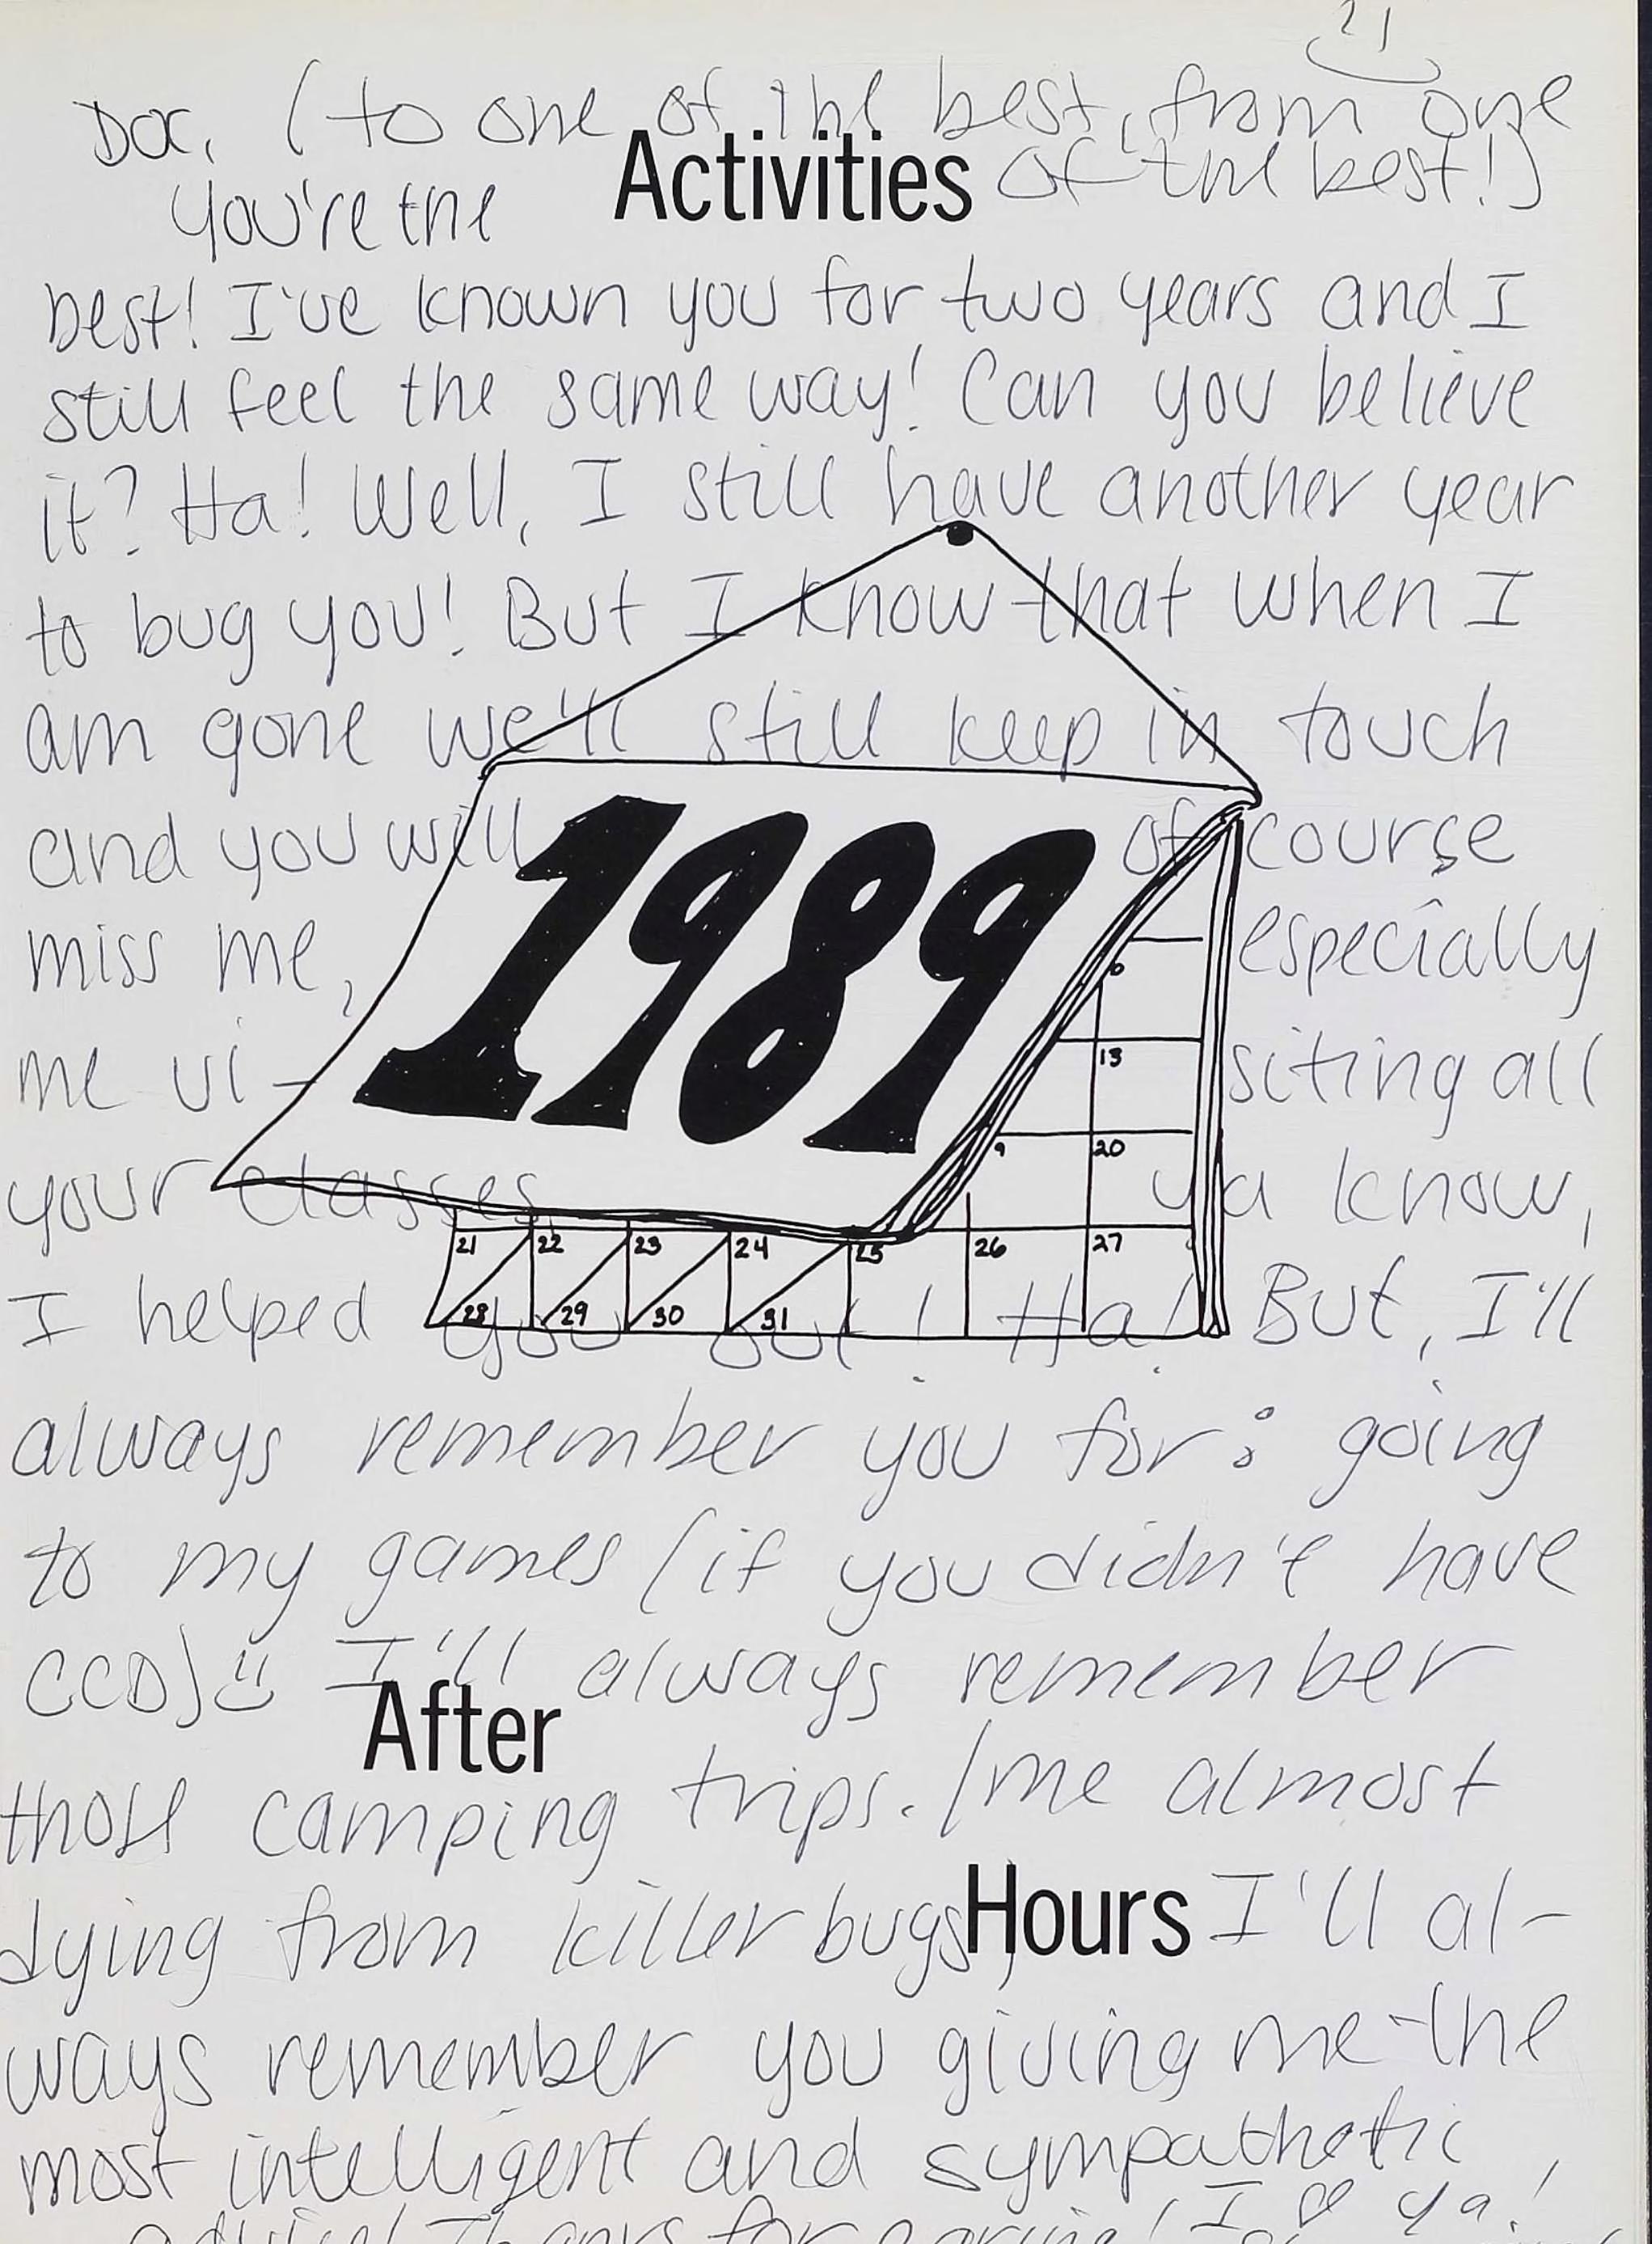 Doc, (to one of the best, from one
Activities of the best!)
You're the
best! I've known you for two years and I
still feel the same way! Can you believe
it? Ha! Well, I still have another year
to bug you! But I know that when I
am gone we'll still keep in touch
and you will of course
miss me, especially
1989
me vi- siting all
your classes, ya know,
6
13
9 20
21 22 23 24 25 26 27
28 29 30 31
I helped you out! Ha! But, I'll
always remember you for: going
to my games (if you didn't have
CCD) I'll always remember
After
those camping trips. (me almost
dying from killer bugs) I'll al-
Hours
ways remember you giving me the
most intelligent and sympathetic
advice! Thanks for caring! I ya!